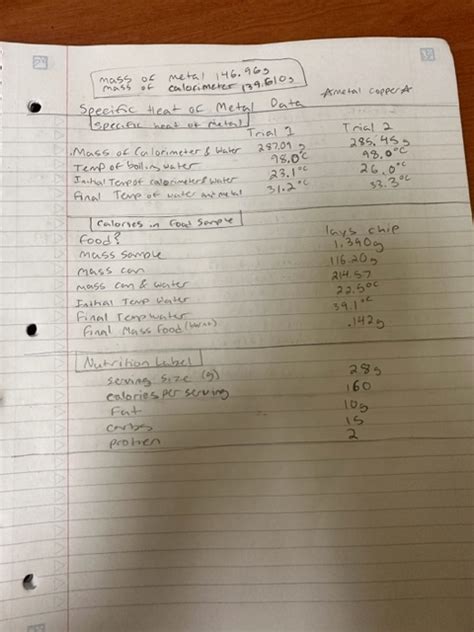 mass of metal 146.96g
mass of calorimeter 139.610g
*metal copper*
Specific Heat of Metal Data
Specific heat of metal
Trial 1 Trial 2
Mass of Calorimeter & Water 287.09 g 285.45 g
Temp of boiling water 98.0°C 98.0°C
Initial Temp of calorimeter & water 23.1°C 26.0°C
Final Temp of water and metal 31.2°C 33.3°C
Calories in Food Sample
Food? lays chip
Mass Sample 1.390g
Mass can 116.20g
mass can & water 214.57
Initial Temp Water 22.5°C
Final Temp water 39.1°C
Final Mass Food (burnt) .142g
Nutrition Label
serving size (g) 28g
calories per serving 160
Fat 10g
carbs 15
protien 2